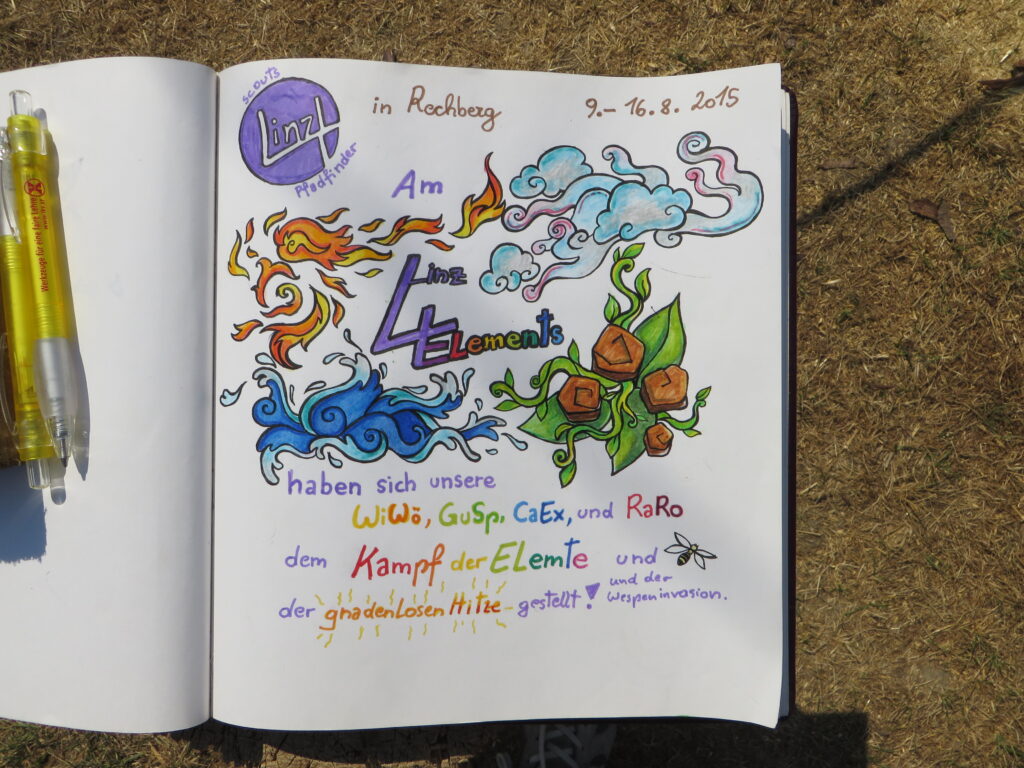 scouts
Linz 4
Pfadfinder
in Rechberg
9.- 16.8. 2015
Am
Linz
4 Elements
haben sich unsere
WiWö, GuSp, CaEx, und RaRo
dem Kampf der ELemte und
und der
der gnadenLosen Hitze gestellt! Wespeninvasion.
Werkzeuge für eine faire Lehre!